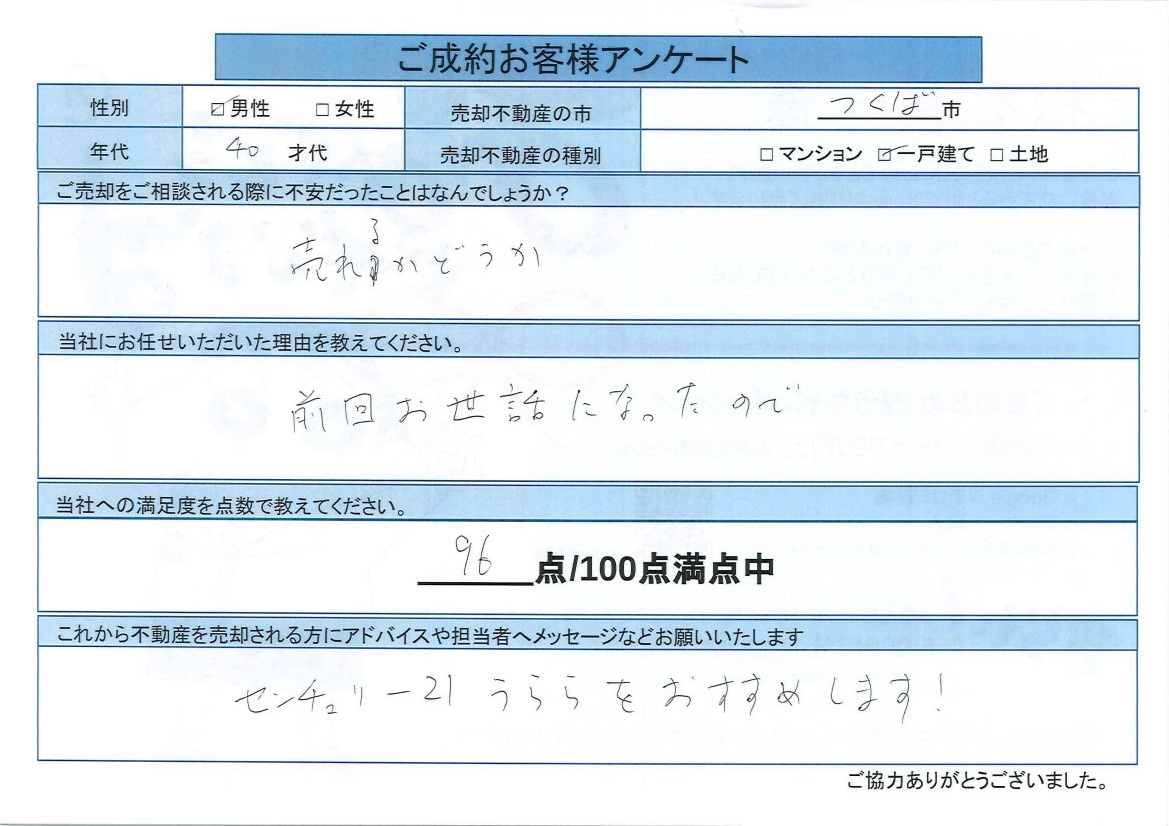 ご成約お客様アンケート
性別 ☑男性 □女性 売却不動産の市 つくば市
年代 40才代 売却不動産の種別 □マンション ☑一戸建て □土地
ご売却をご相談される際に不安だったことはなんでしょうか？
売れるかどうか
当社にお任せいただいた理由を教えてください。
前回お世話になったので
当社への満足度を点数で教えてください。
96点/100点満点中
これから不動産を売却される方にアドバイスや担当者へメッセージなどお願いいたします
センチュリー21うららをおすすめします！
ご協力ありがとうございました。